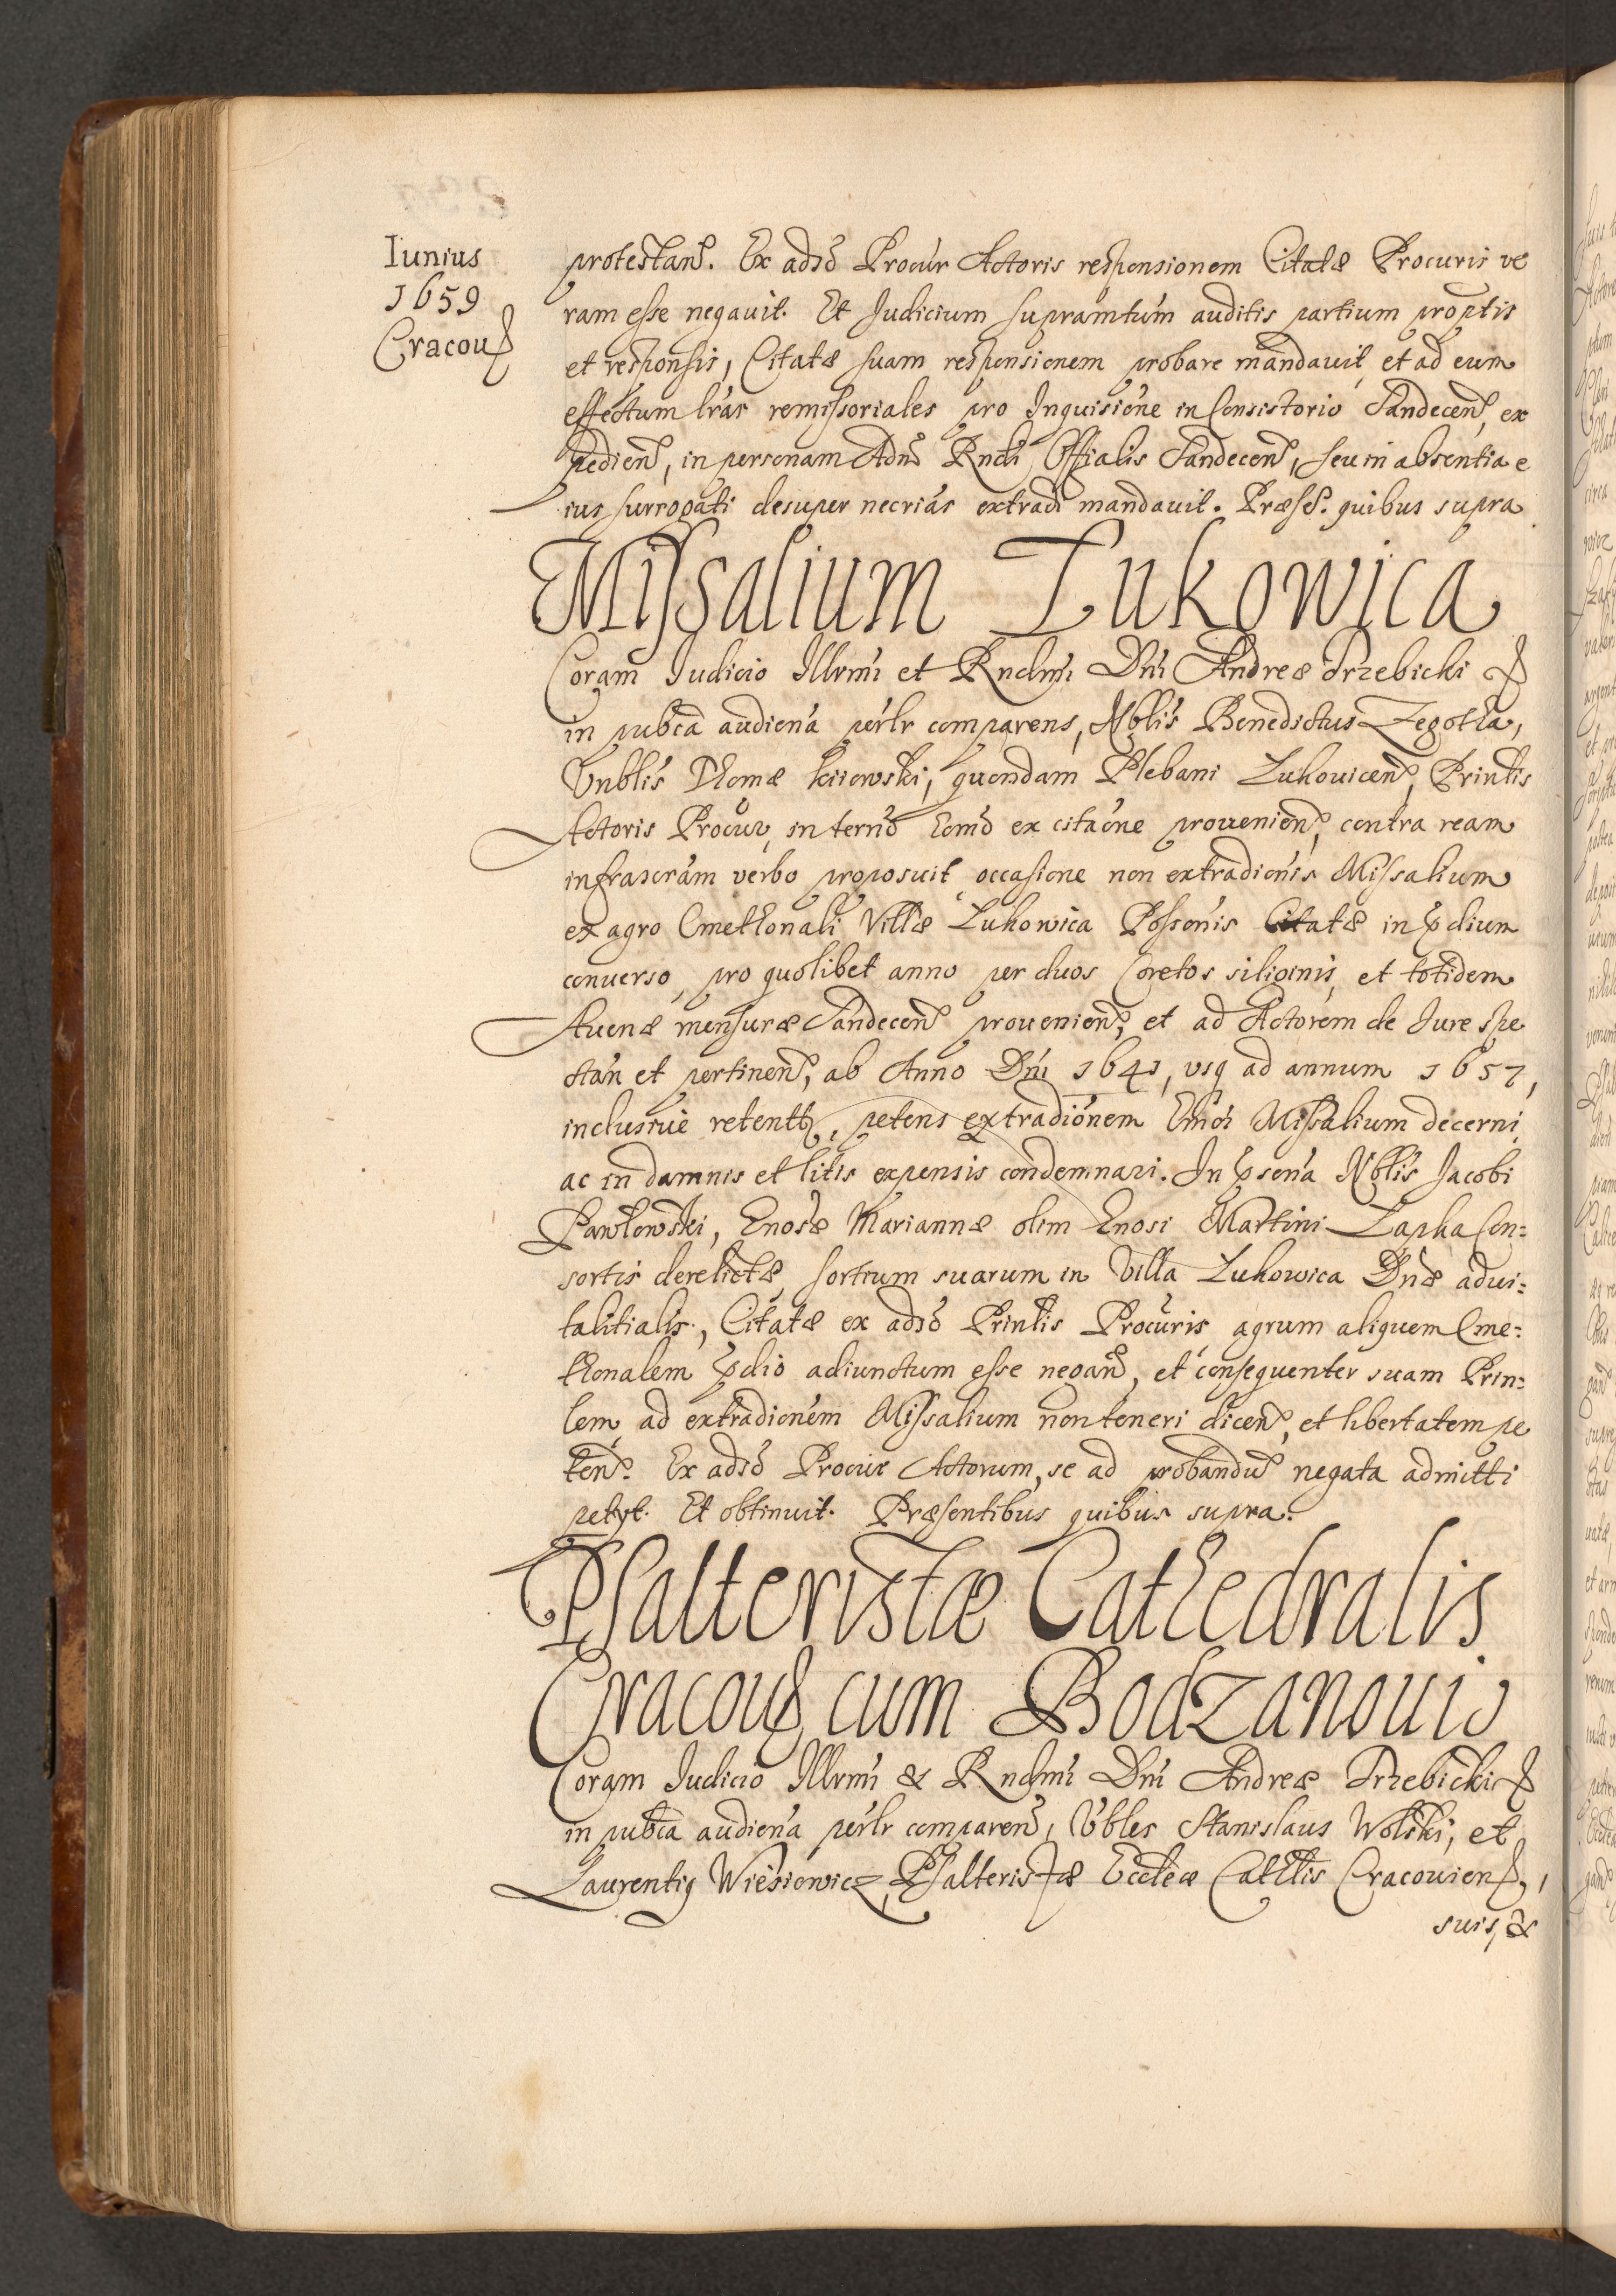 Iunius
1659
Cracou
protestan. Ex adsõ Procur Actoris responsionem Citatæ Procuris ve
ram esse negauit. Et Judicium supramtum auditis partium proptis
et responsis, Citatæ suam responsionem probare mandauit, et ad eum
effectum lrás remissoriales pro Inquisióne in Consistorio Sandecen, ex
pedien, in personam Adm Rndi Offialis Sandecen, seu in absentia e
ius surrogati desuper necriás extradi mandauit. Præsés. quibus supra
Missalium Łukowica
Coram Judicio Illrmi et Rndmi Dni Andreæ Trzebicki
in pubca audiena perlr comparens, Nblis Benedictus Zegotha,
Vnblis Thomæ Kiiowski, quondam Plebani Lukouicen, Printis
Actoris Procur, in termo ex citaóne prouenien, contra ream
infrascrám verbo proposuit occasione non extradiónis Missalium
ex agro Cmethonali Villæ Lukowica Possónis Citatæ in pdium
conuerso, pro quolibet anno per duos Coretos siliginis, et totidem
Auenæ mensuræ Sandecen prouenien, et ad Actorem de Iure spe
ctan et pertinen, ab Anno Dni 1641, vsq ad annum 1657,
inclusiue retent, petens extradiónem Missalium decerni
ac in damnis et litis expensis condemnari. In psena Nblis Jacobi
Pawłowski, Enosæ Mariannæ olim Enosi Martini Łapka Con:
sortis derelictæ, sortium suarum in Villa Lukowica Dnæ adui:
talitialis, Citatæ ex adsõ Printis Procuris agrum aliquem Cme:
thonalem pdio adiunctum esse negan, et consequenter suam Prin:
lem, ad extradiónem Missalium non teneri dicen, et libertatem pe
ten. Ex adsõ Procur Actorum, se ad probandu negata admitti
petyt. Et obtinuit. Præsentibus quibus supra.
Psalteristæ Cathedralis
Cracou cum Bodzanouis
Coram Judicio Illrmi & Rndmi Dni Andreæ Trzebicki
in pubca audiena perlr comparen, Vbles Stanislaus Wolski, et
Laurenti9 Wiesiowicz, Psalteristæ Eccleæ Cathtis Cracouien,
suis, &